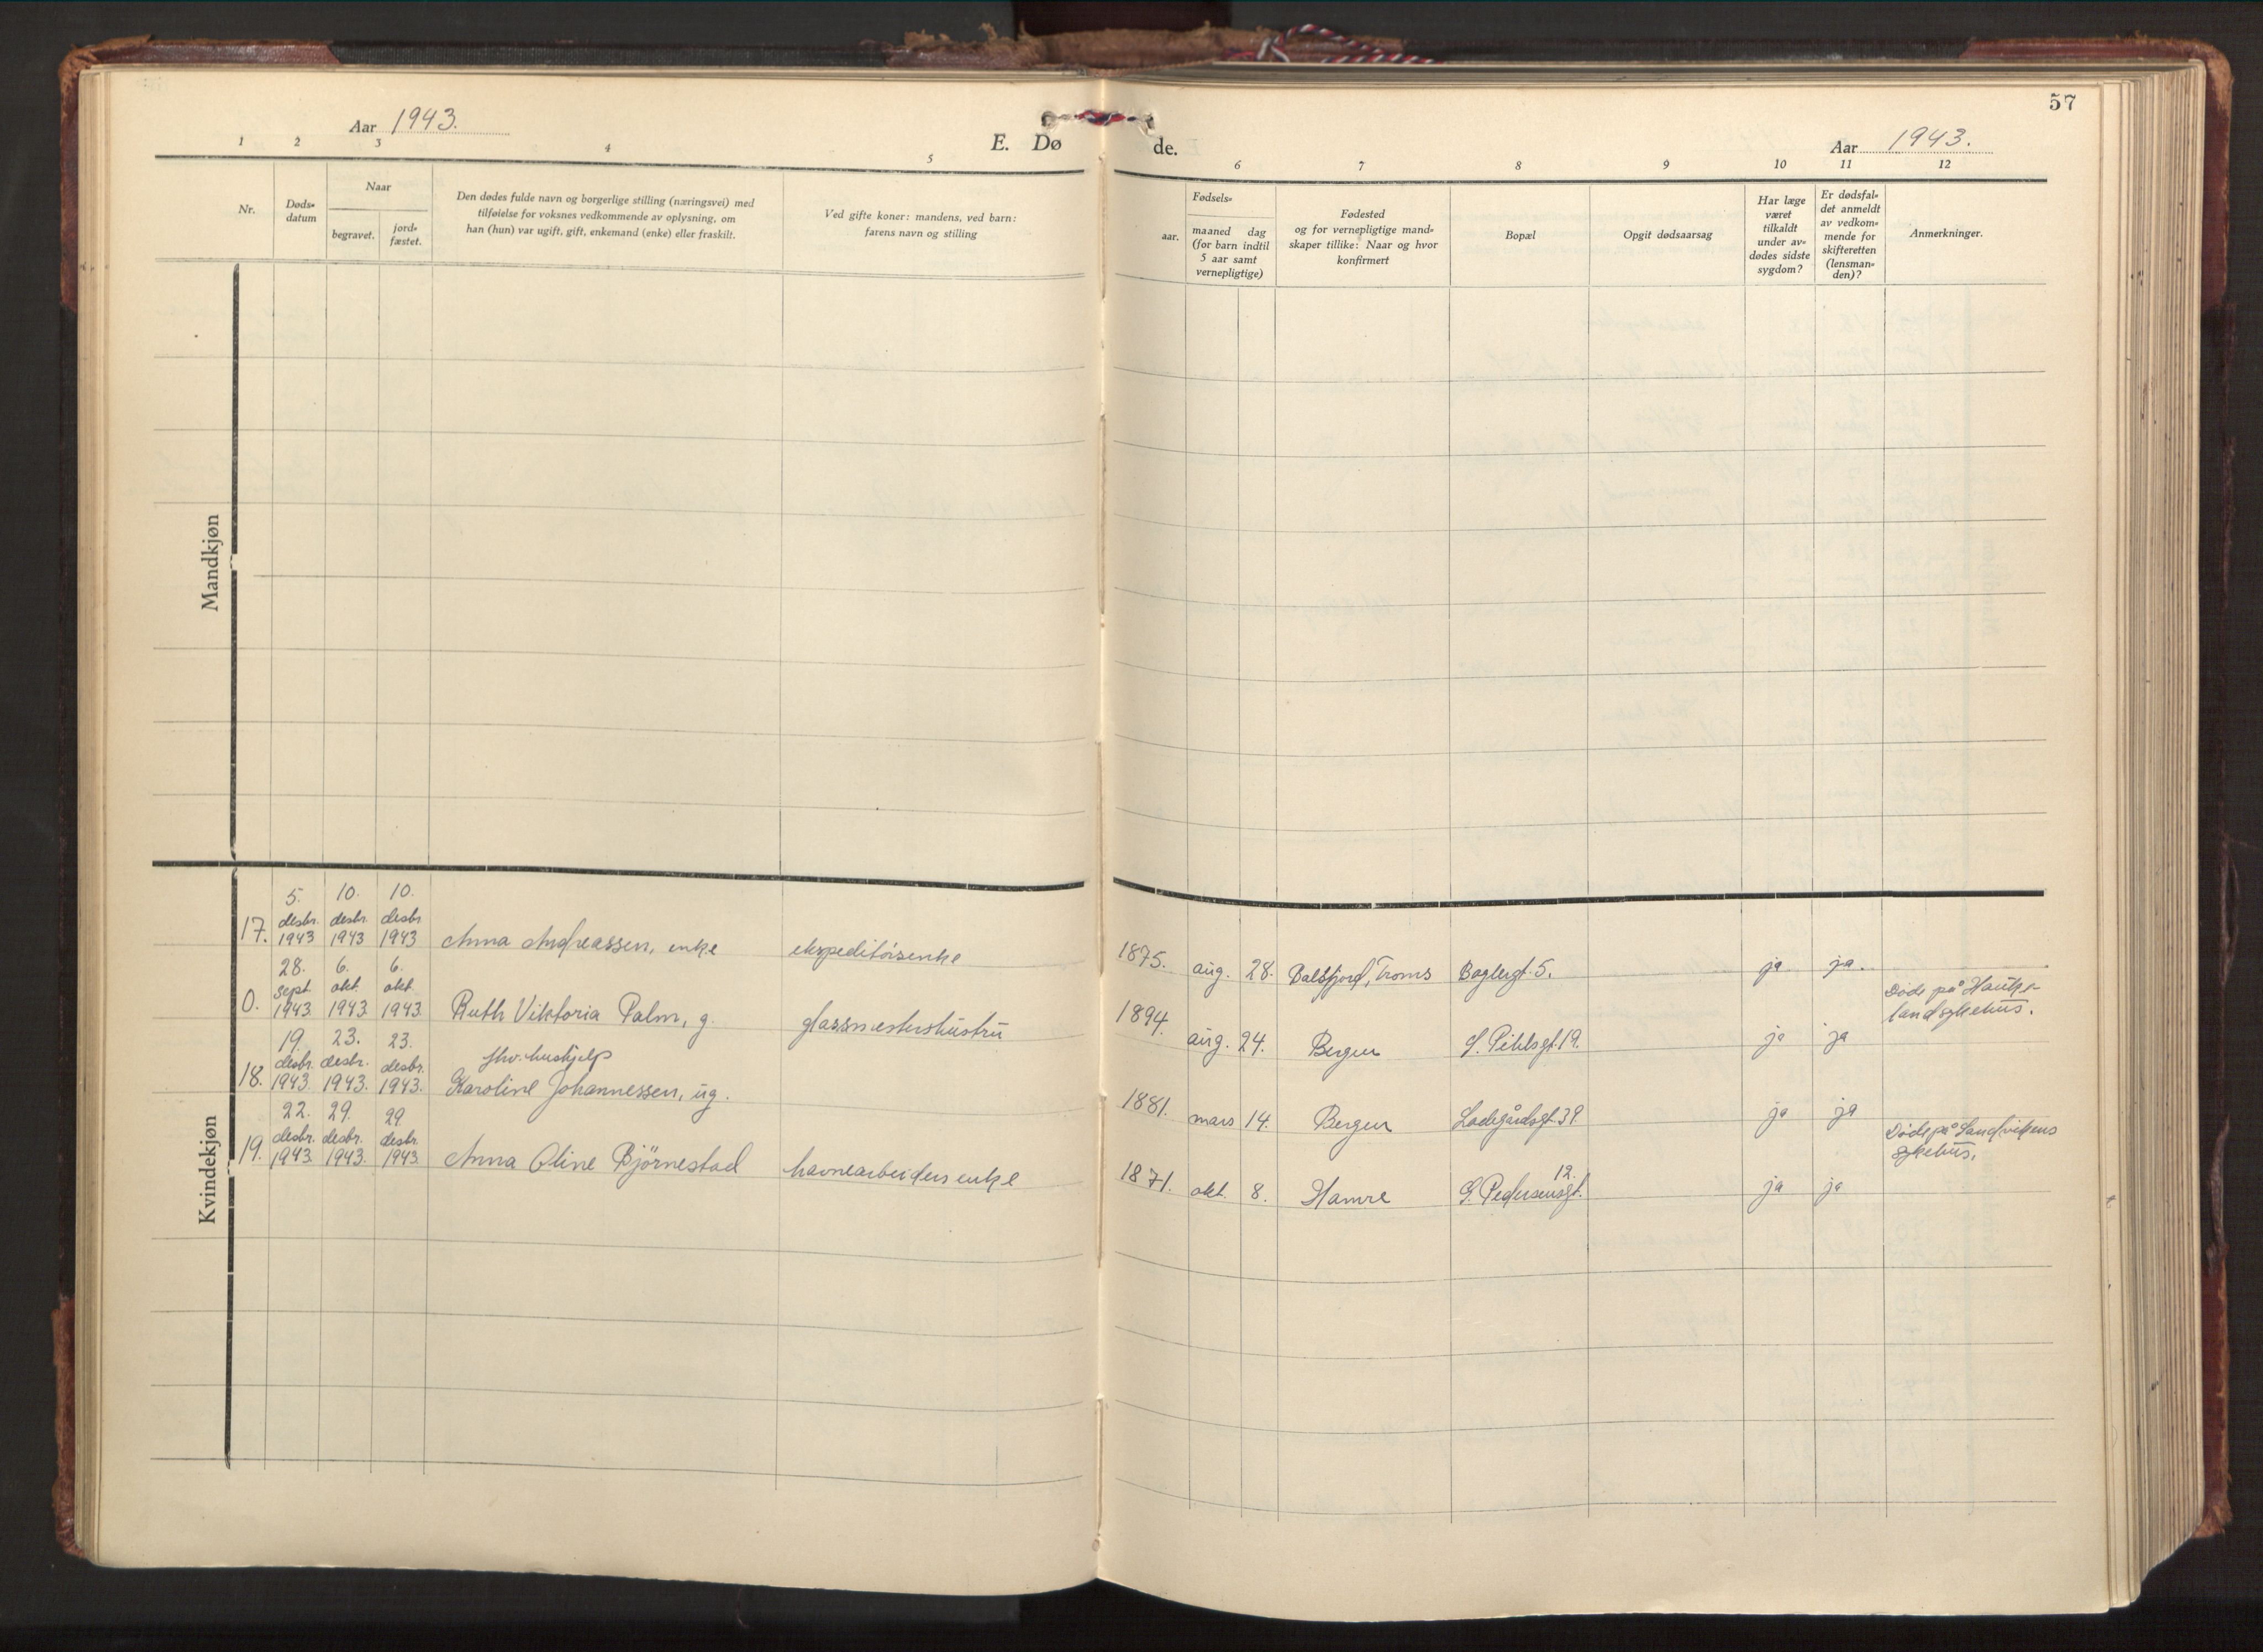 57
Aar 1943.
E. Dø
de.
Aar 1943.
1 2 3 4 5 6 7 8 9 10 11 12
Nr.
Døds-
datum
Naar
begravet.
jord-
fæstet.
Den dødes fulde navn og borgerlige stilling (næringsvei) med
tilføielse for voksnes vedkommende av oplysning, om
han (hun) var ugift, gift, enkemand (enke) eller fraskilt.
Ved gifte koner: mandens, ved barn:
farens navn og stilling
Fødsels-
aar.
maaned dag
(for barn indtil
5 aar samt
vernepligtige)
Fødested
og for vernepligtige mand-
skaper tillike: Naar og hvor
konfirmert
Bopæl
Opgit dødsaarsag
Har læge
været
tilkaldt
under av-
dødes sidste
sygdom?
Er dødsfal-
det anmeldt
av vedkom-
mende for
skifteretten
(lensman-
den)?
Anmerkninger.
Mandkjøn
Kvindekjøn
5. 10. 10.
desbr. desbr. desbr.
17. 1943 1943 1943 Anna Andreassen, enke ekspeditørsenke 1875. aug. 28. Balsfjord, Troms Baglergt. 5. ja ja.
28. 6. 6.
sept. okt. okt. Døde på Hauke-
0. 1943. 1943. 1943. Ruth Viktoria Palm, g. glassmestershustru 1894. aug. 24. Bergen S. Pihlsgt. 19. ja ja landsykehus.
19. 23. 23.
desbr. desbr. desbr. fhv. hushjelp
18. 1943. 1943. 1943. Karoline Johannessen, ug. 1881. mars 14. Bergen Ladegårdsgt. 39. ja ja
22. 29. 29.
desbr. desbr. desbr. 12. Døde på Sandvikens
19. 1943. 1943. 1943. Anna Oline Björnestad havnearbeiders enke 1871. okt. 8. Hamre G. Pedersensgt. ja ja sykehus.